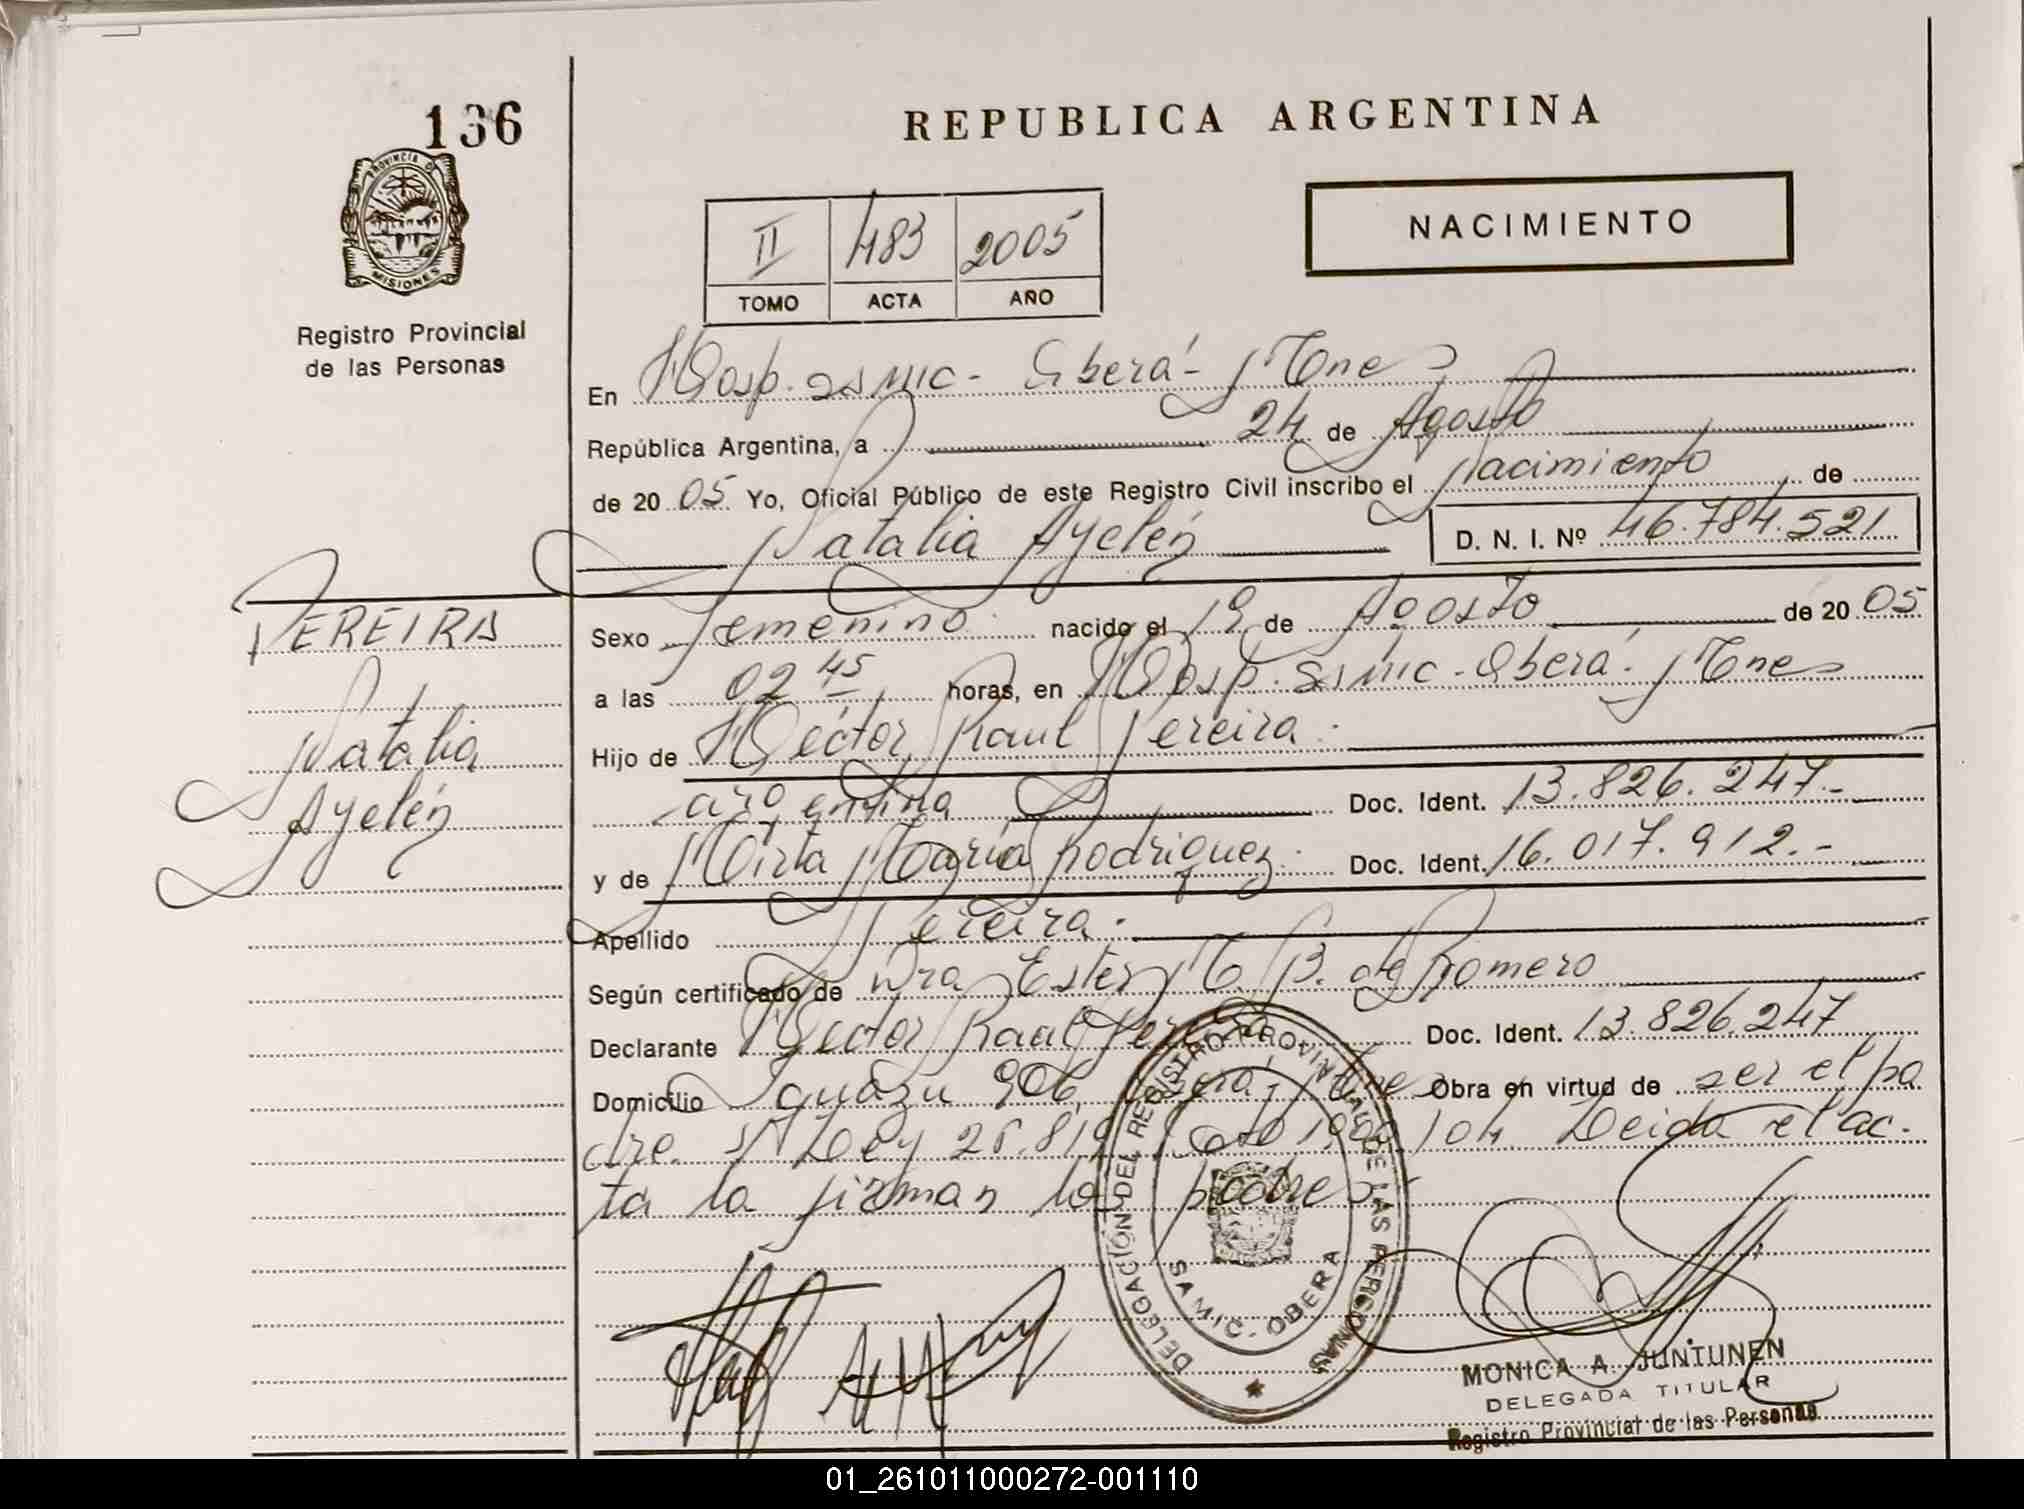 136
PROVINCIA DE
MISIONES
Registro Provincial
de las Personas
REPUBLICA ARGENTINA
NACIMIENTO
II 483 2005
TOMO ACTA AÑO
En Hosp. SAMIC - Oberá - Mnes
República Argentina, a 24 de Agosto
de 20 05 Yo, Oficial Público de este Registro Civil inscribo el Nacimiento de
Natalia Ayelén D. N. I. Nº 46.784.521
PEREIRA
Natalia
Ayelén
Sexo Femenino nacido el 1º de Agosto de 20 05
a las 02 45 horas, en Hosp. SAMIC - Oberá - Mnes
Hijo de Héctor Raul Pereira
argentina Doc. Ident. 13.826.247.-
y de Mirta María Rodriguez Doc. Ident. 16.017.912.-
Apellido Pereira.
Según certificado de Dra Ester M. B. de Romero
Declarante Hector Raul Pereira Doc. Ident. 13.826.247
Domicilio Iguazu 906, Oberá, Mnes Obra en virtud de ser el pa
dre. Ley 25.819 1900/04. Leida el ac.
ta la firman los padres
DELEGACIÓN DEL REGISTRO PROVINCIAL DE LAS PERSONAS
SAMIC. OBERA
MONICA A. JUNTUNEN
DELEGADA TITULAR
Registro Provincial de las Personas
01_261011000272-001110